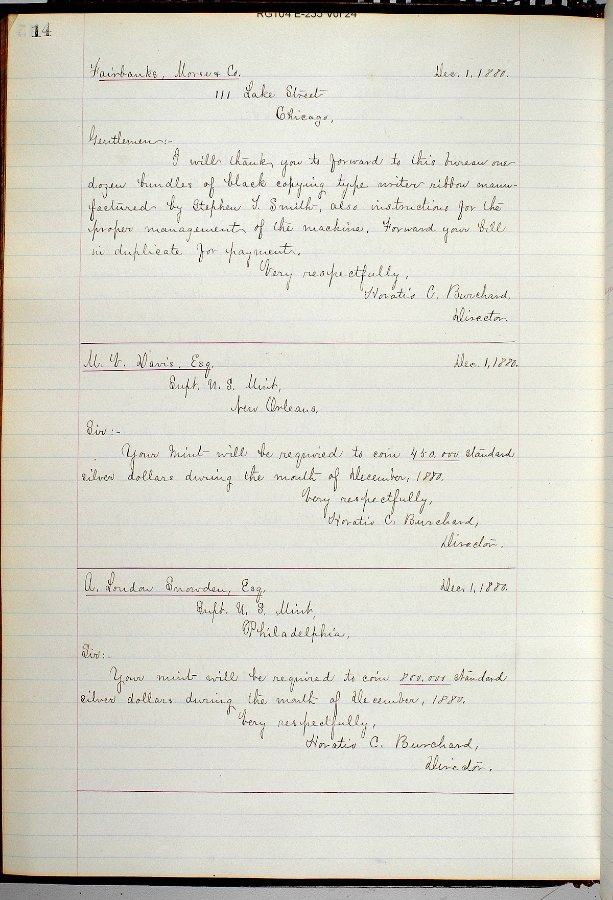 RG104 E-235 Vol 24
14
Fairbanks, Morse & Co. Dec. 1, 1880.
111 Lake Street
Chicago,
Gentlemen:-
I will thank you to forward to this bureau one
dozen bundles of black copying type writer ribbon manu-
factured by Stephen T. Smith, also instructions for the
proper management of the machine. Forward your bill
in duplicate for payment.
Very respectfully,
Horatio C. Burchard,
Director.
M. V. Davis, Esq. Dec. 1, 1880.
Supt. U. S. Mint,
New Orleans,
Sir:-
Your Mint will be required to coin 450.000 standard
silver dollars during the month of December, 1880.
Very respectfully,
Horatio C. Burchard,
Director.
A. Loudon Snowden, Esq. Dec. 1, 1880.
Supt. U. S. Mint,
Philadelphia,
Sir:-
Your mint will be required to coin 800.000 standard
silver dollars during the month of December, 1880.
Very respectfully,
Horatio C. Burchard,
Director.